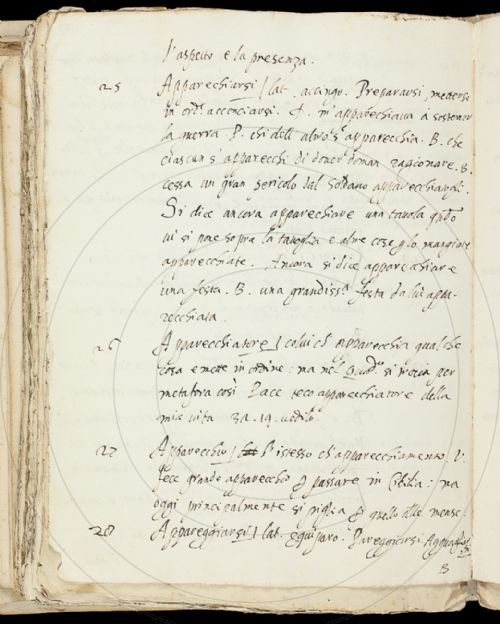 l'aspetto e la presenza.
25 Apparechiarsi / lat. accingo. Prepararsi, mettersi
in ord.e acconciarsi. D. m'apparechiava à sostener
la guerra P. chi dell' altro s' apparecchia. B. che
ciascun s' apparecchi di dover doman ragionare. B.
cessa un gran pericolo dal Soldano apparecchiatogli.
Si dice ancora apparechiare una tavola
vi si pone sopra la tovaglia e altre cose p lo mangiare
apparecchiate. Ancora si dice apparecchiare
una festa. B. una grandiss.a festa da lui appa-
recchiata
26 Apparecchiatore / colui ch' apparecchia qualche
cosa e mette in ordine: ma nel si trova per
metafora così Pace teco apparecchiatore della
mia vita 3a. 19.
27 Apparecchio / l' istesso ch' apparecchiamento. V.
fece grande apparecchio p passare in Cicilia: ma
oggi principalmente si piglia p quello delle mense.
28 Appareggiarsi / lat. equiparo. Pareggiarsi
B